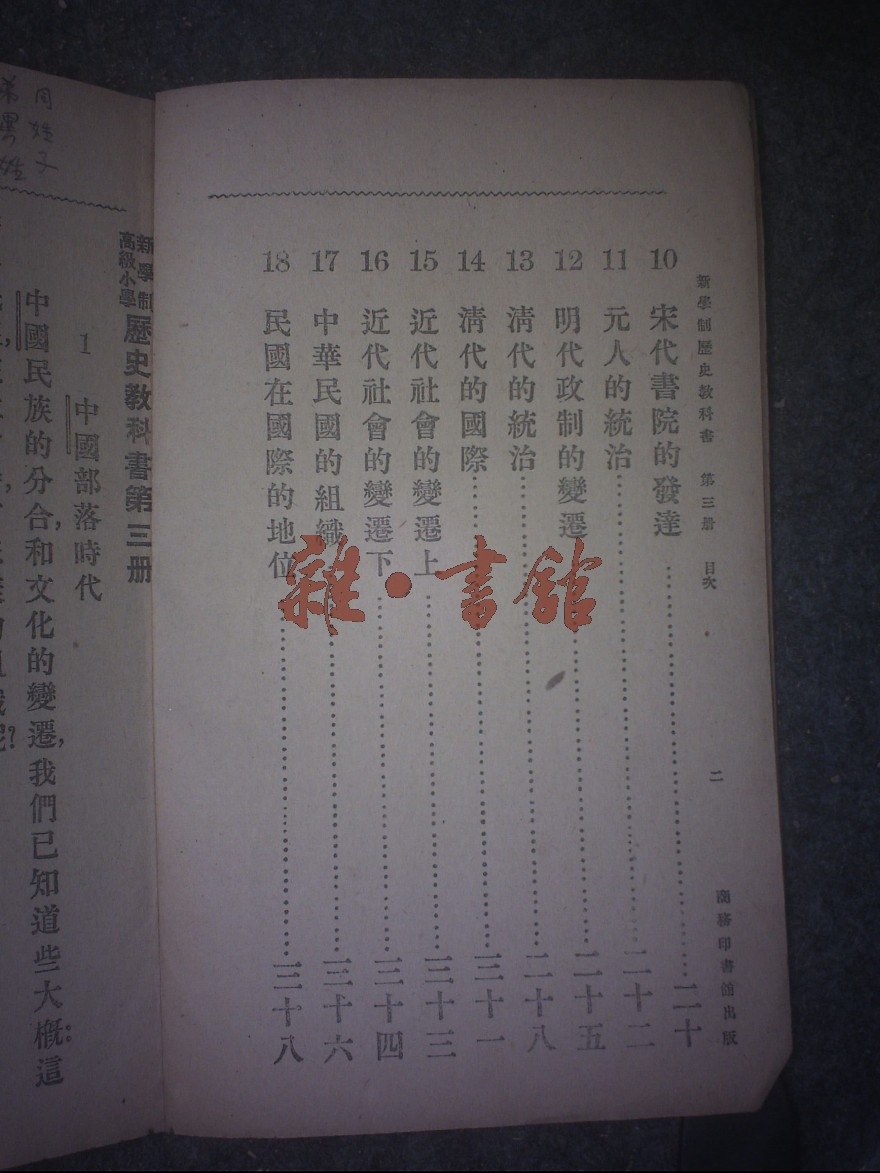 新學制歷史教科書 第三册 目次 二 商務印書館出版
10 宋代書院的發達……二十
11 元人的統治……二十二
12 明代政制的變遷……二十五
13 清代的統治……二十八
14 清代的國際……三十一
15 近代社會的變遷上……三十三
16 近代社會的變遷下……三十四
17 中華民國的組織……三十六
18 民國在國際的地位……三十八
雜·書館
新學制
高級小學
歷史教科書第三册
1 中國部落時代
中國民族的分合,和文化的變遷,我們已知道些大槪:這
同姓子
弟異姓